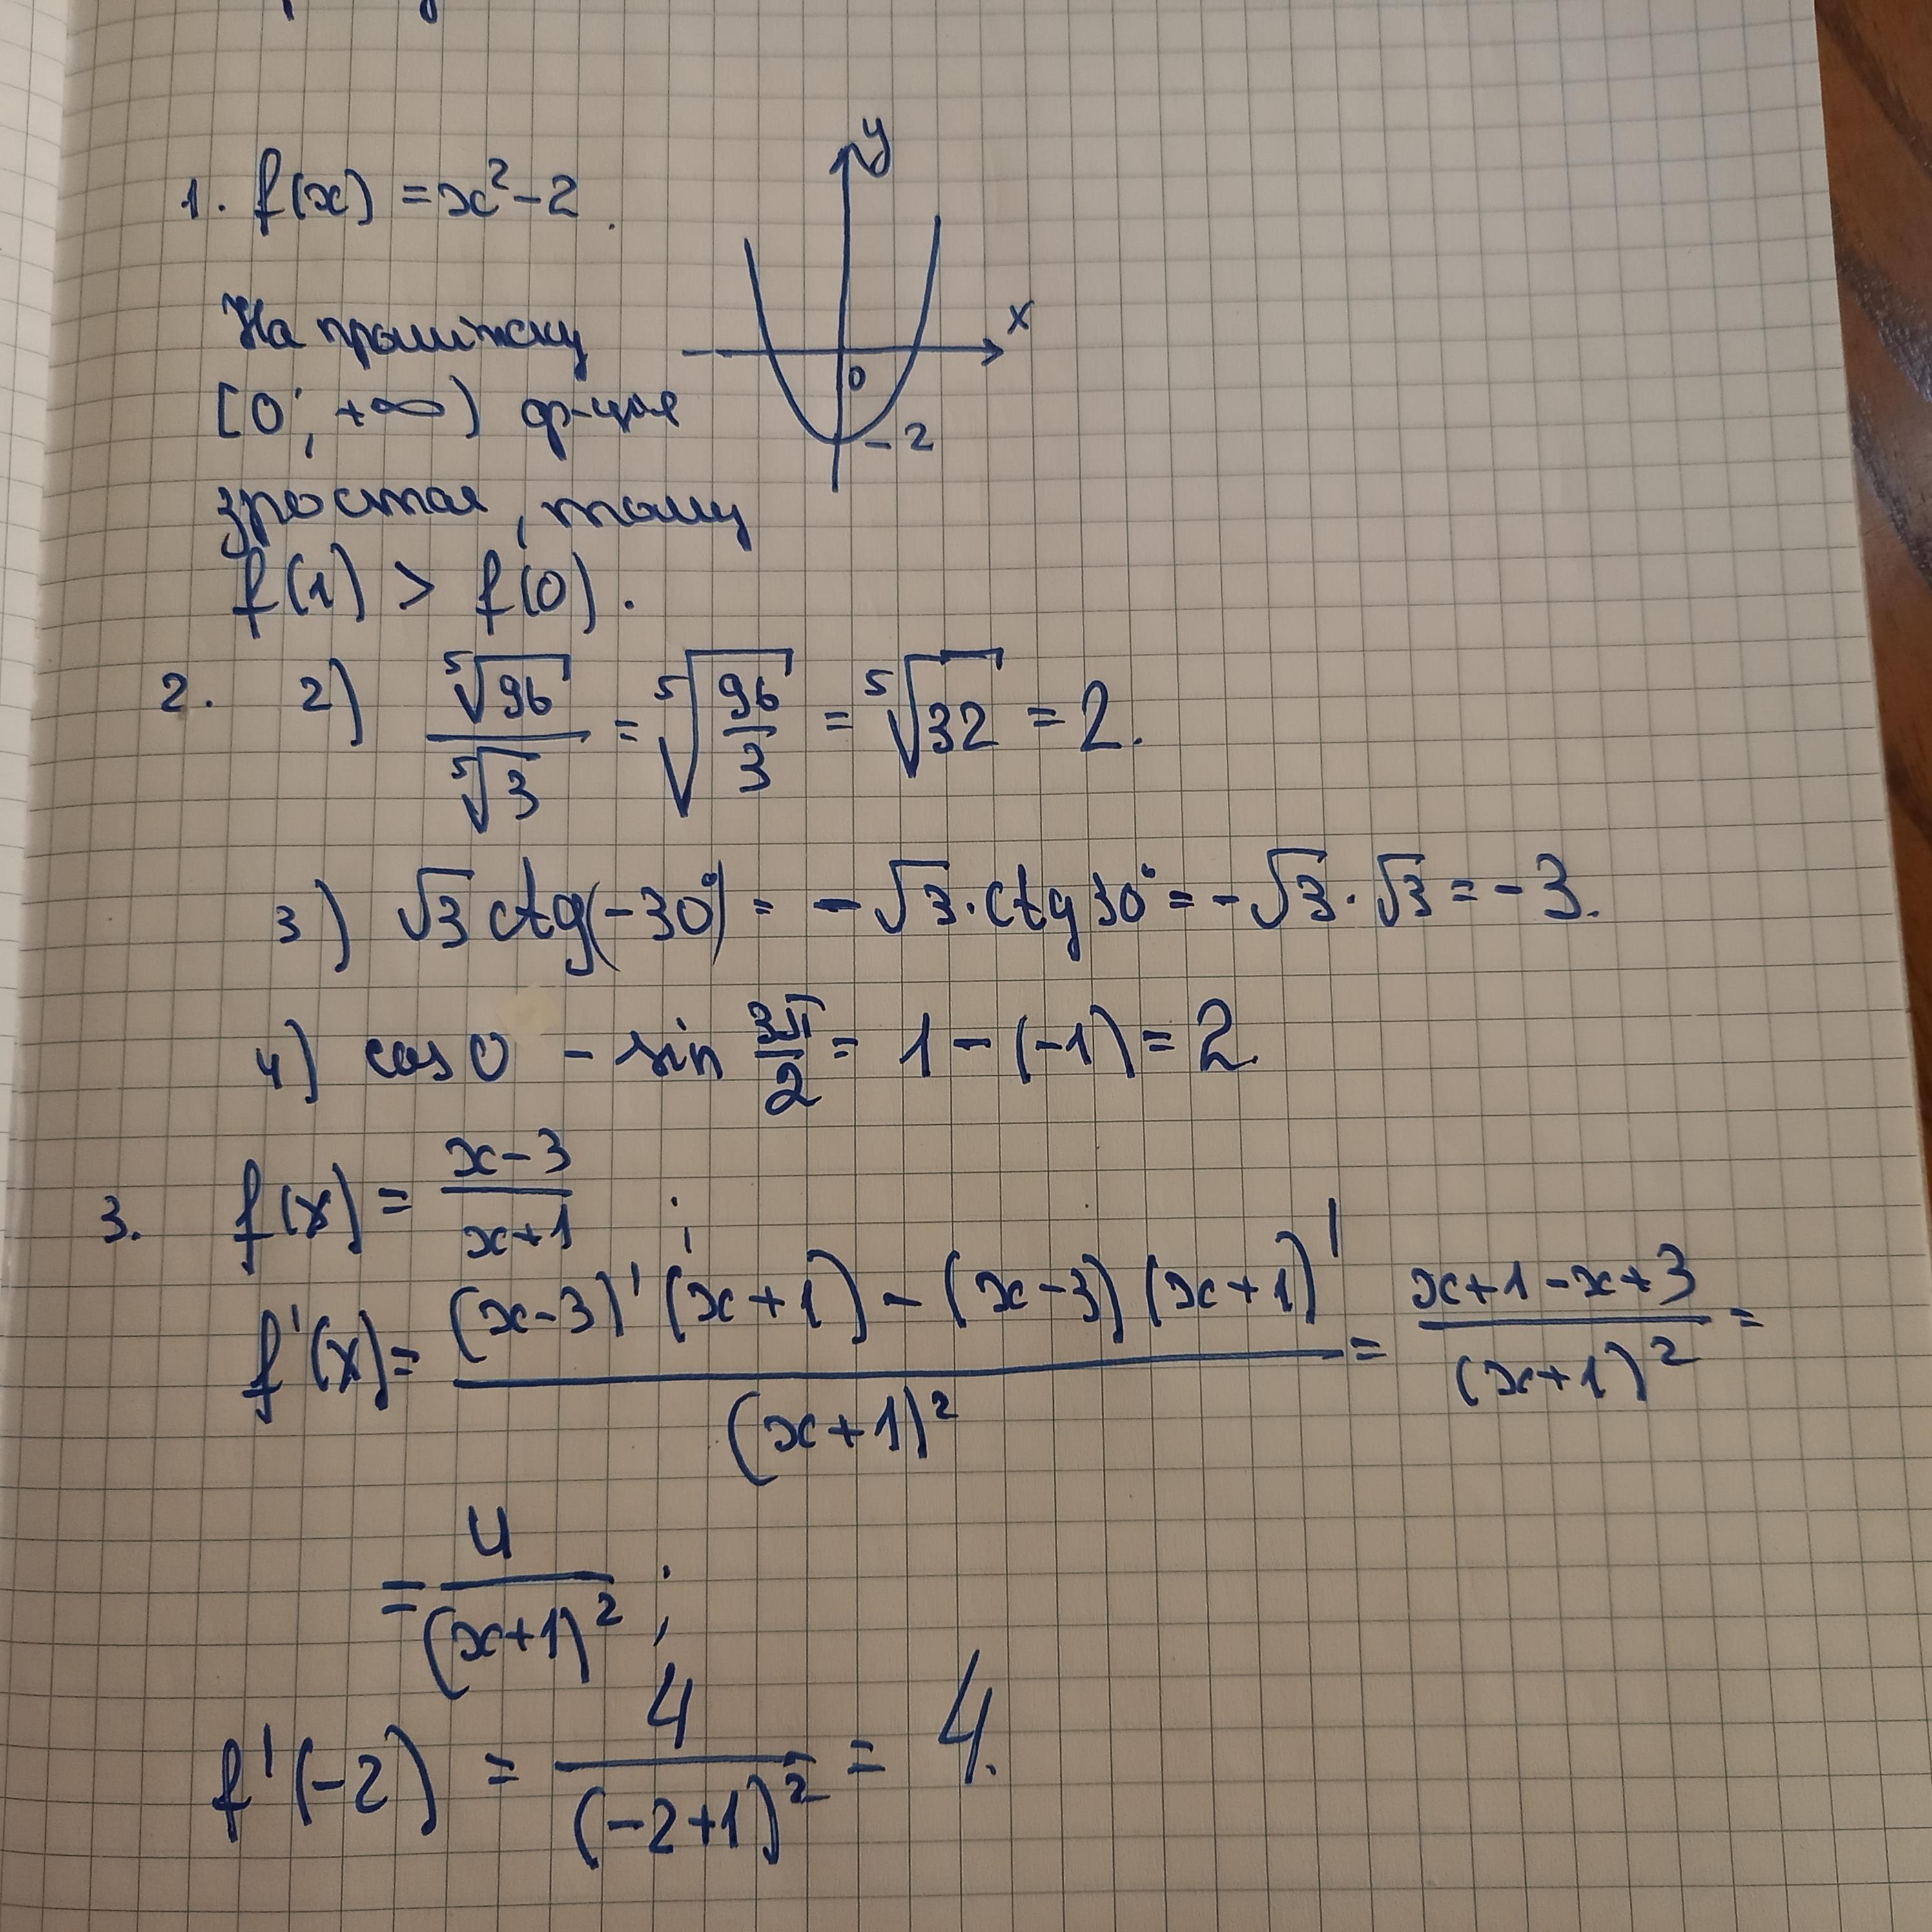 1. f(x) = x² - 2.
y
x
0
-2
На проміжку
[0; +∞) ф-ція
зростає, тому
f(1) > f(0).
2. 2) ⁵√96 / ⁵√3 = ⁵√(96/3) = ⁵√32 = 2.
3) √3 ctg(-30°) = -√3 · ctg 30° = -√3 · √3 = -3.
4) cos 0 - sin 3π/2 = 1 - (-1) = 2.
3. f(x) = (x-3)/(x+1) ;
f'(x) = ((x-3)'(x+1) - (x-3)(x+1)')/(x+1)² = (x+1-x+3)/(x+1)² =
= 4/(x+1)² ;
f'(-2) = 4/(-2+1)² = 4.